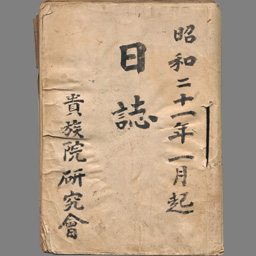 昭和二十一年一月起
日誌
貴族院研究會